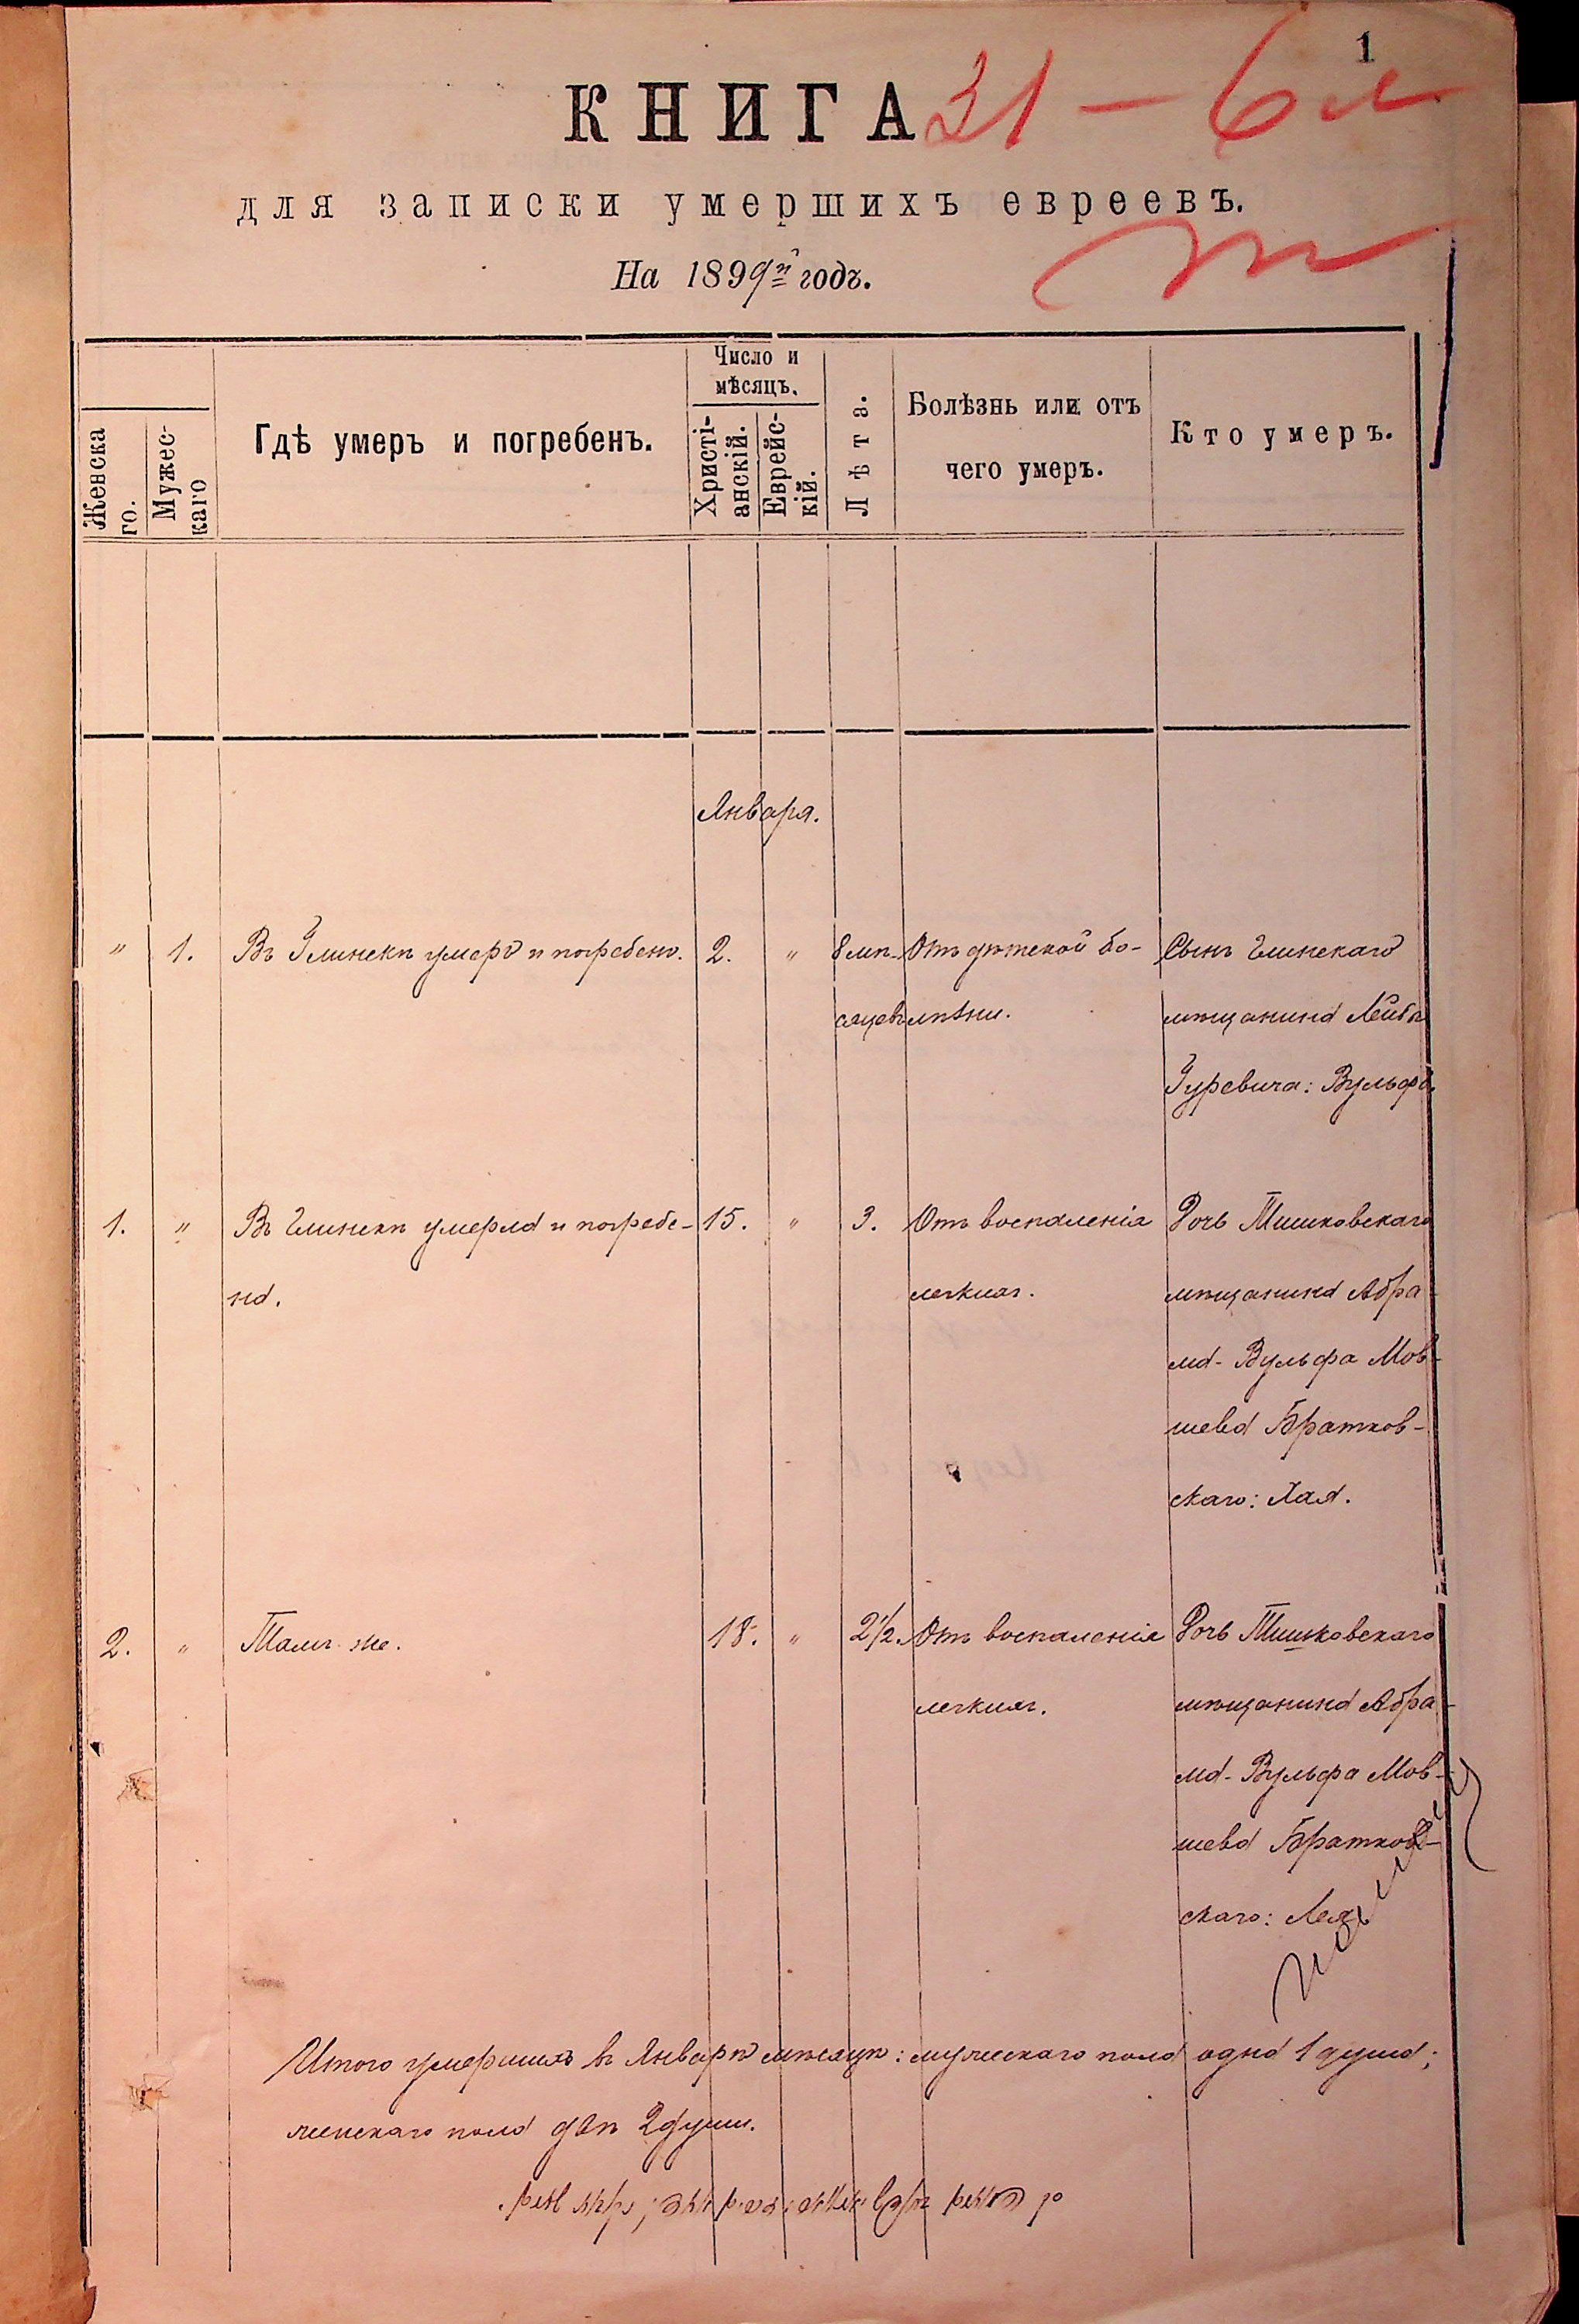 1
КНИГА 31 – 6 л
для записки умершихъ евреевъ.
На 1899й годъ.
Женска
го.
Мужес-
каго
Гдѣ умеръ и погребенъ.
Число и
мѣсяцъ.
Христі-
анскій.
Еврейс-
кій.
Лѣта.
Болѣзнь или отъ
чего умеръ.
Кто умеръ.
Января.
" 1. Въ Глинскѣ умеръ и погребенъ. 2. " 8 мѣ- Отъ дѣтской бо- Сынъ Глинскаго
сяцевъ лѣзни. мѣщанина Лейбы
Гуревича: Вульфъ.
1. " Въ Глинскѣ умерла и погребе- 15. " 3. Отъ воспаленія Дочь Тишковскаго
на. легкихъ. мѣщанина Абра-
ма-Вульфа Мов-
шева Братков-
скаго: Хая.
2. " Тамъ же. 18. " 2½. Отъ воспаленія Дочь Тишковскаго
легкихъ. мѣщанина Абра-
ма-Вульфа Мов-
шева Братков-
скаго: Лея.
Итого умершихъ въ Январѣ мѣсяцѣ: мужескаго пола одна 1 душа;
женскаго пола двѣ 2 души.